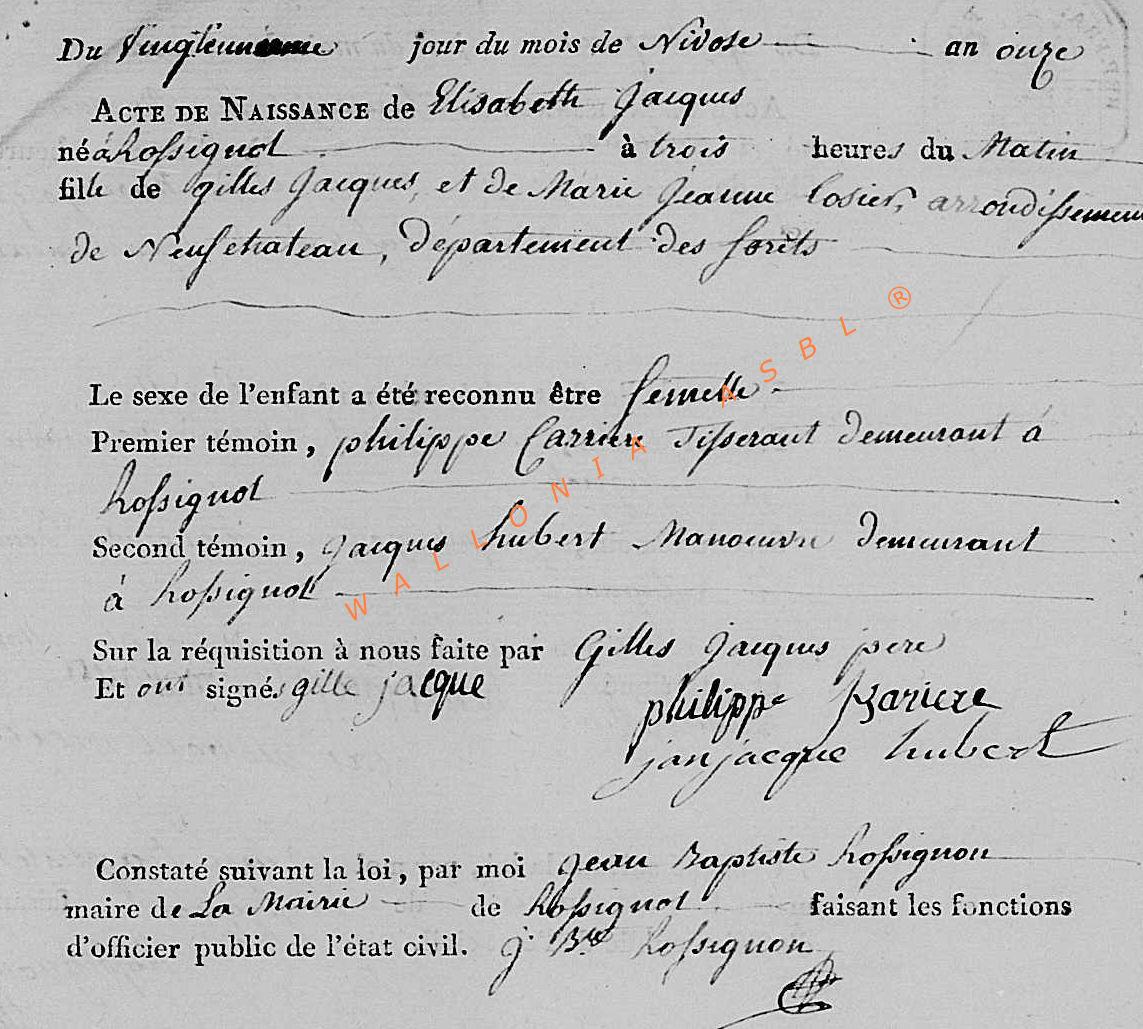 Du Vingteunieme jour du mois de Nivose an onze
ACTE DE NAISSANCE de Elisabeth Jacques
né à Rossignol à trois heures du Matin
fille de gilles Jacques, et de Marie Jeanne Cosier, arrondissement
de Neufchateau, département des forêts
Le sexe de l'enfant a été reconnu être femelle
Premier témoin, philippe Carriere Tisserant demeurant à
Rossignol
Second témoin, jacques hubert Manoeuvre demeurant
à Rossignol
Sur la réquisition à nous faite par Gilles jacques pere
Et ont signés gille jacque
philippe Kariere
janjacque hubert
Constaté suivant la loi, par moi Jean Baptiste Rossignon
maire de La Mairie de Rossignol faisant les fonctions
d'officier public de l'état civil. J. Bte Rossignon
WALLONIA ASBL ®